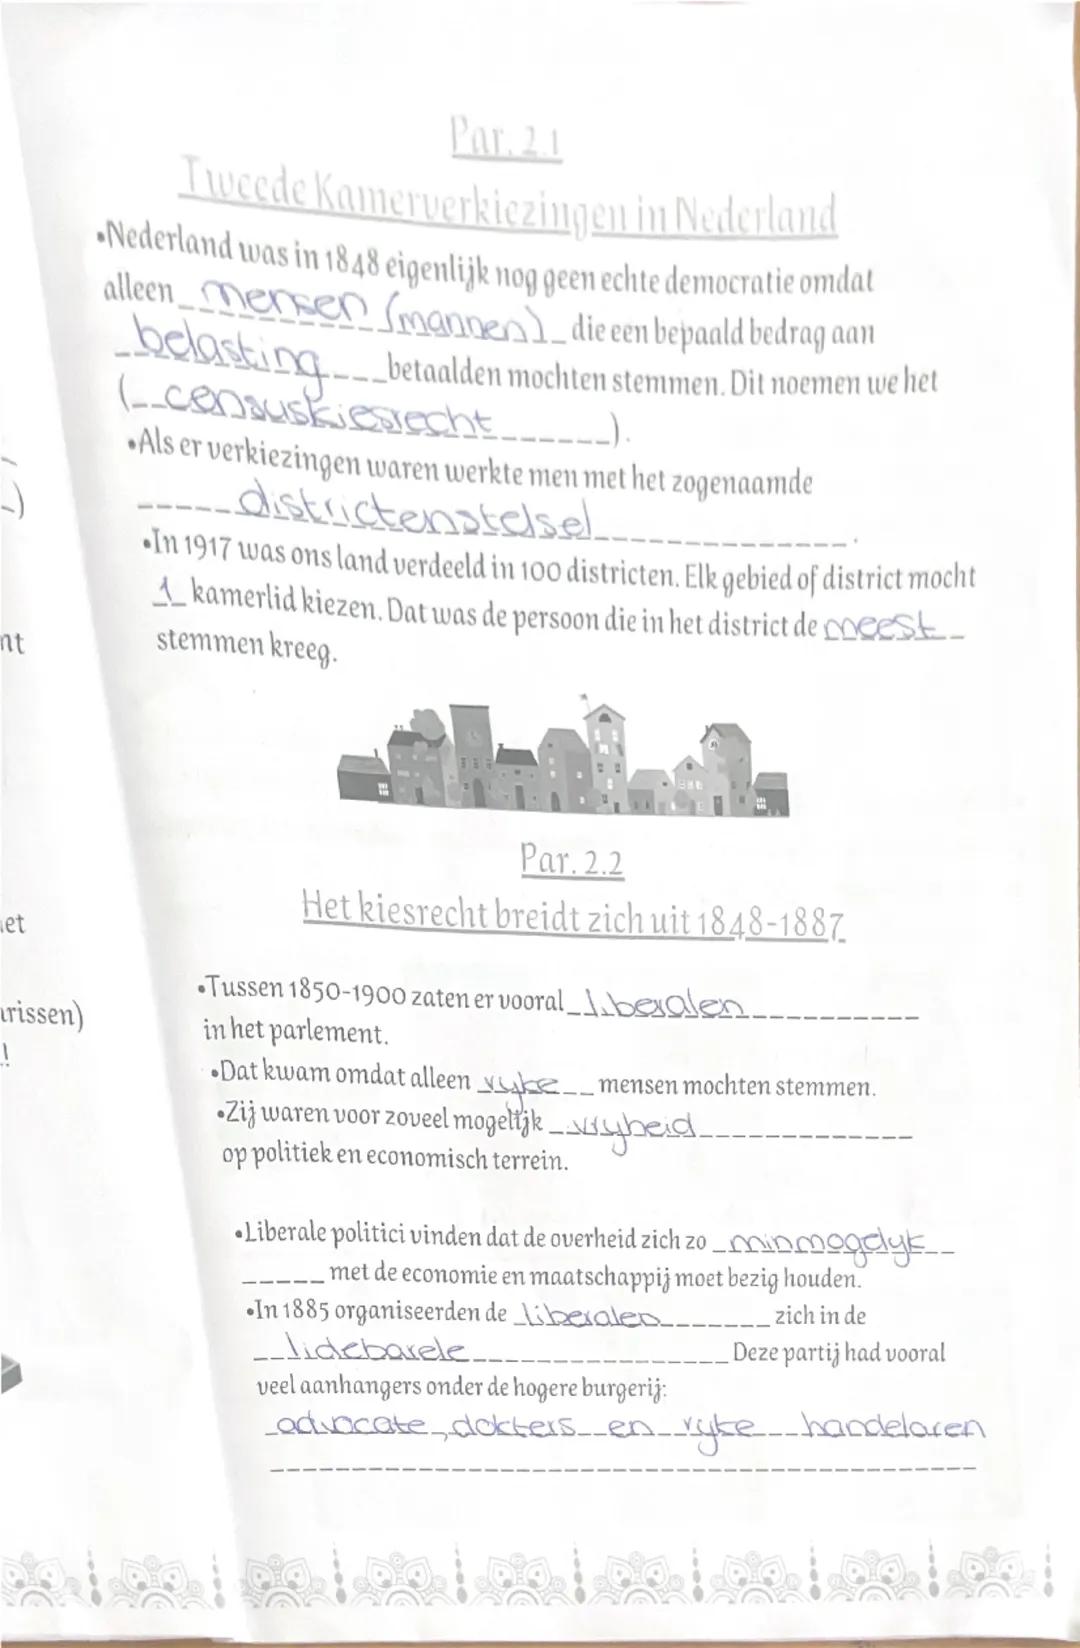 Par. 2.1
Tweede Kamerverkiezingen in Nederland
•Nederland was in 1848 eigenlijk nog geen echte democratie omdat
alleen mensen (mannen) die een bepaald bedrag aan
belasting betaalden mochten stemmen. Dit noemen we het
(censuskiesrecht).
•Als er verkiezingen waren werkte men met het zogenaamde
districtenstelsel.
•In 1917 was ons land verdeeld in 100 districten. Elk gebied of district mocht
1 kamerlid kiezen. Dat was de persoon die in het district de meest
stemmen kreeg.
Par. 2.2
Het kiesrecht breidt zich uit 1848-1887
•Tussen 1850-1900 zaten er vooral liberalen
in het parlement.
•Dat kwam omdat alleen ryke mensen mochten stemmen.
•Zij waren voor zoveel mogelijk vryheid
op politiek en economisch terrein.
•Liberale politici vinden dat de overheid zich zo min mogelyk
met de economie en maatschappij moet bezig houden.
•In 1885 organiseerden de liberalen zich in de
lidebarele Deze partij had vooral
veel aanhangers onder de hogere burgerij:
advocate, dokters en ryke handelaren
nt
et
rissen)
!